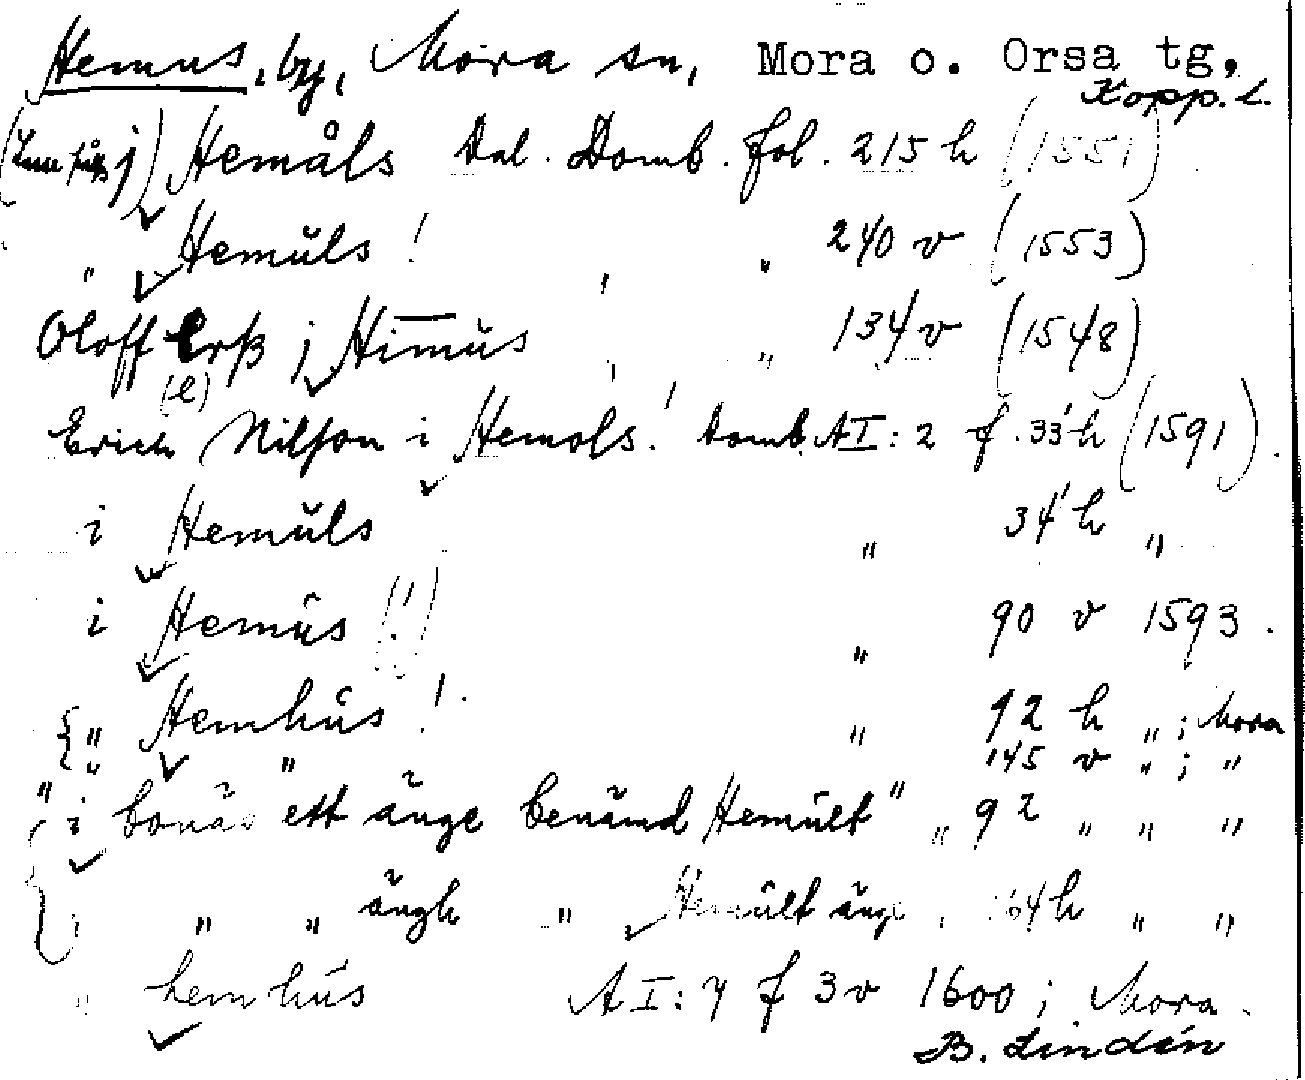 Hemus, by, Mora sn, Mora o. Orsa tg,
Kopp. l.
j) Hemåls Dal. Domb. fol. 215 h (1551)
" Hemŭls ! " 240 v (1553)
Oloff Erß j Himŭs " 134 v (1548)
(e)
Erich Nilsson i Hemols! Domb. AI: 2 f. 33 h (1591).
i Hemŭls " 34 h "
i Hemŭs (!) " 90 v 1593.
" Hemhŭs ! " 92 h " ; Mora
" " 145 v " ; "
"i bonäs ett änge benämd Hemŭlt" " 92 " " "
i " " ängh " Hemŭlt änge 164 h " "
" hemhŭs AI: 7 f 3 v 1600 ; Mora.
B. Lindén